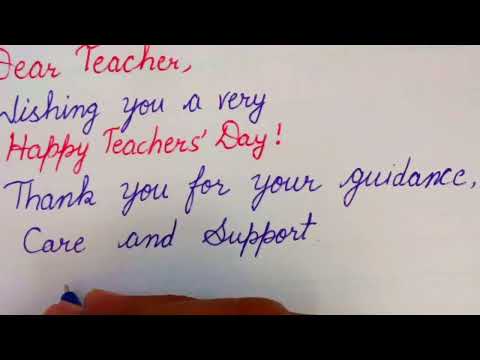 Dear Teacher,
Wishing you a very
Happy Teachers' Day!
Thank you for your guidance,
Care and Support